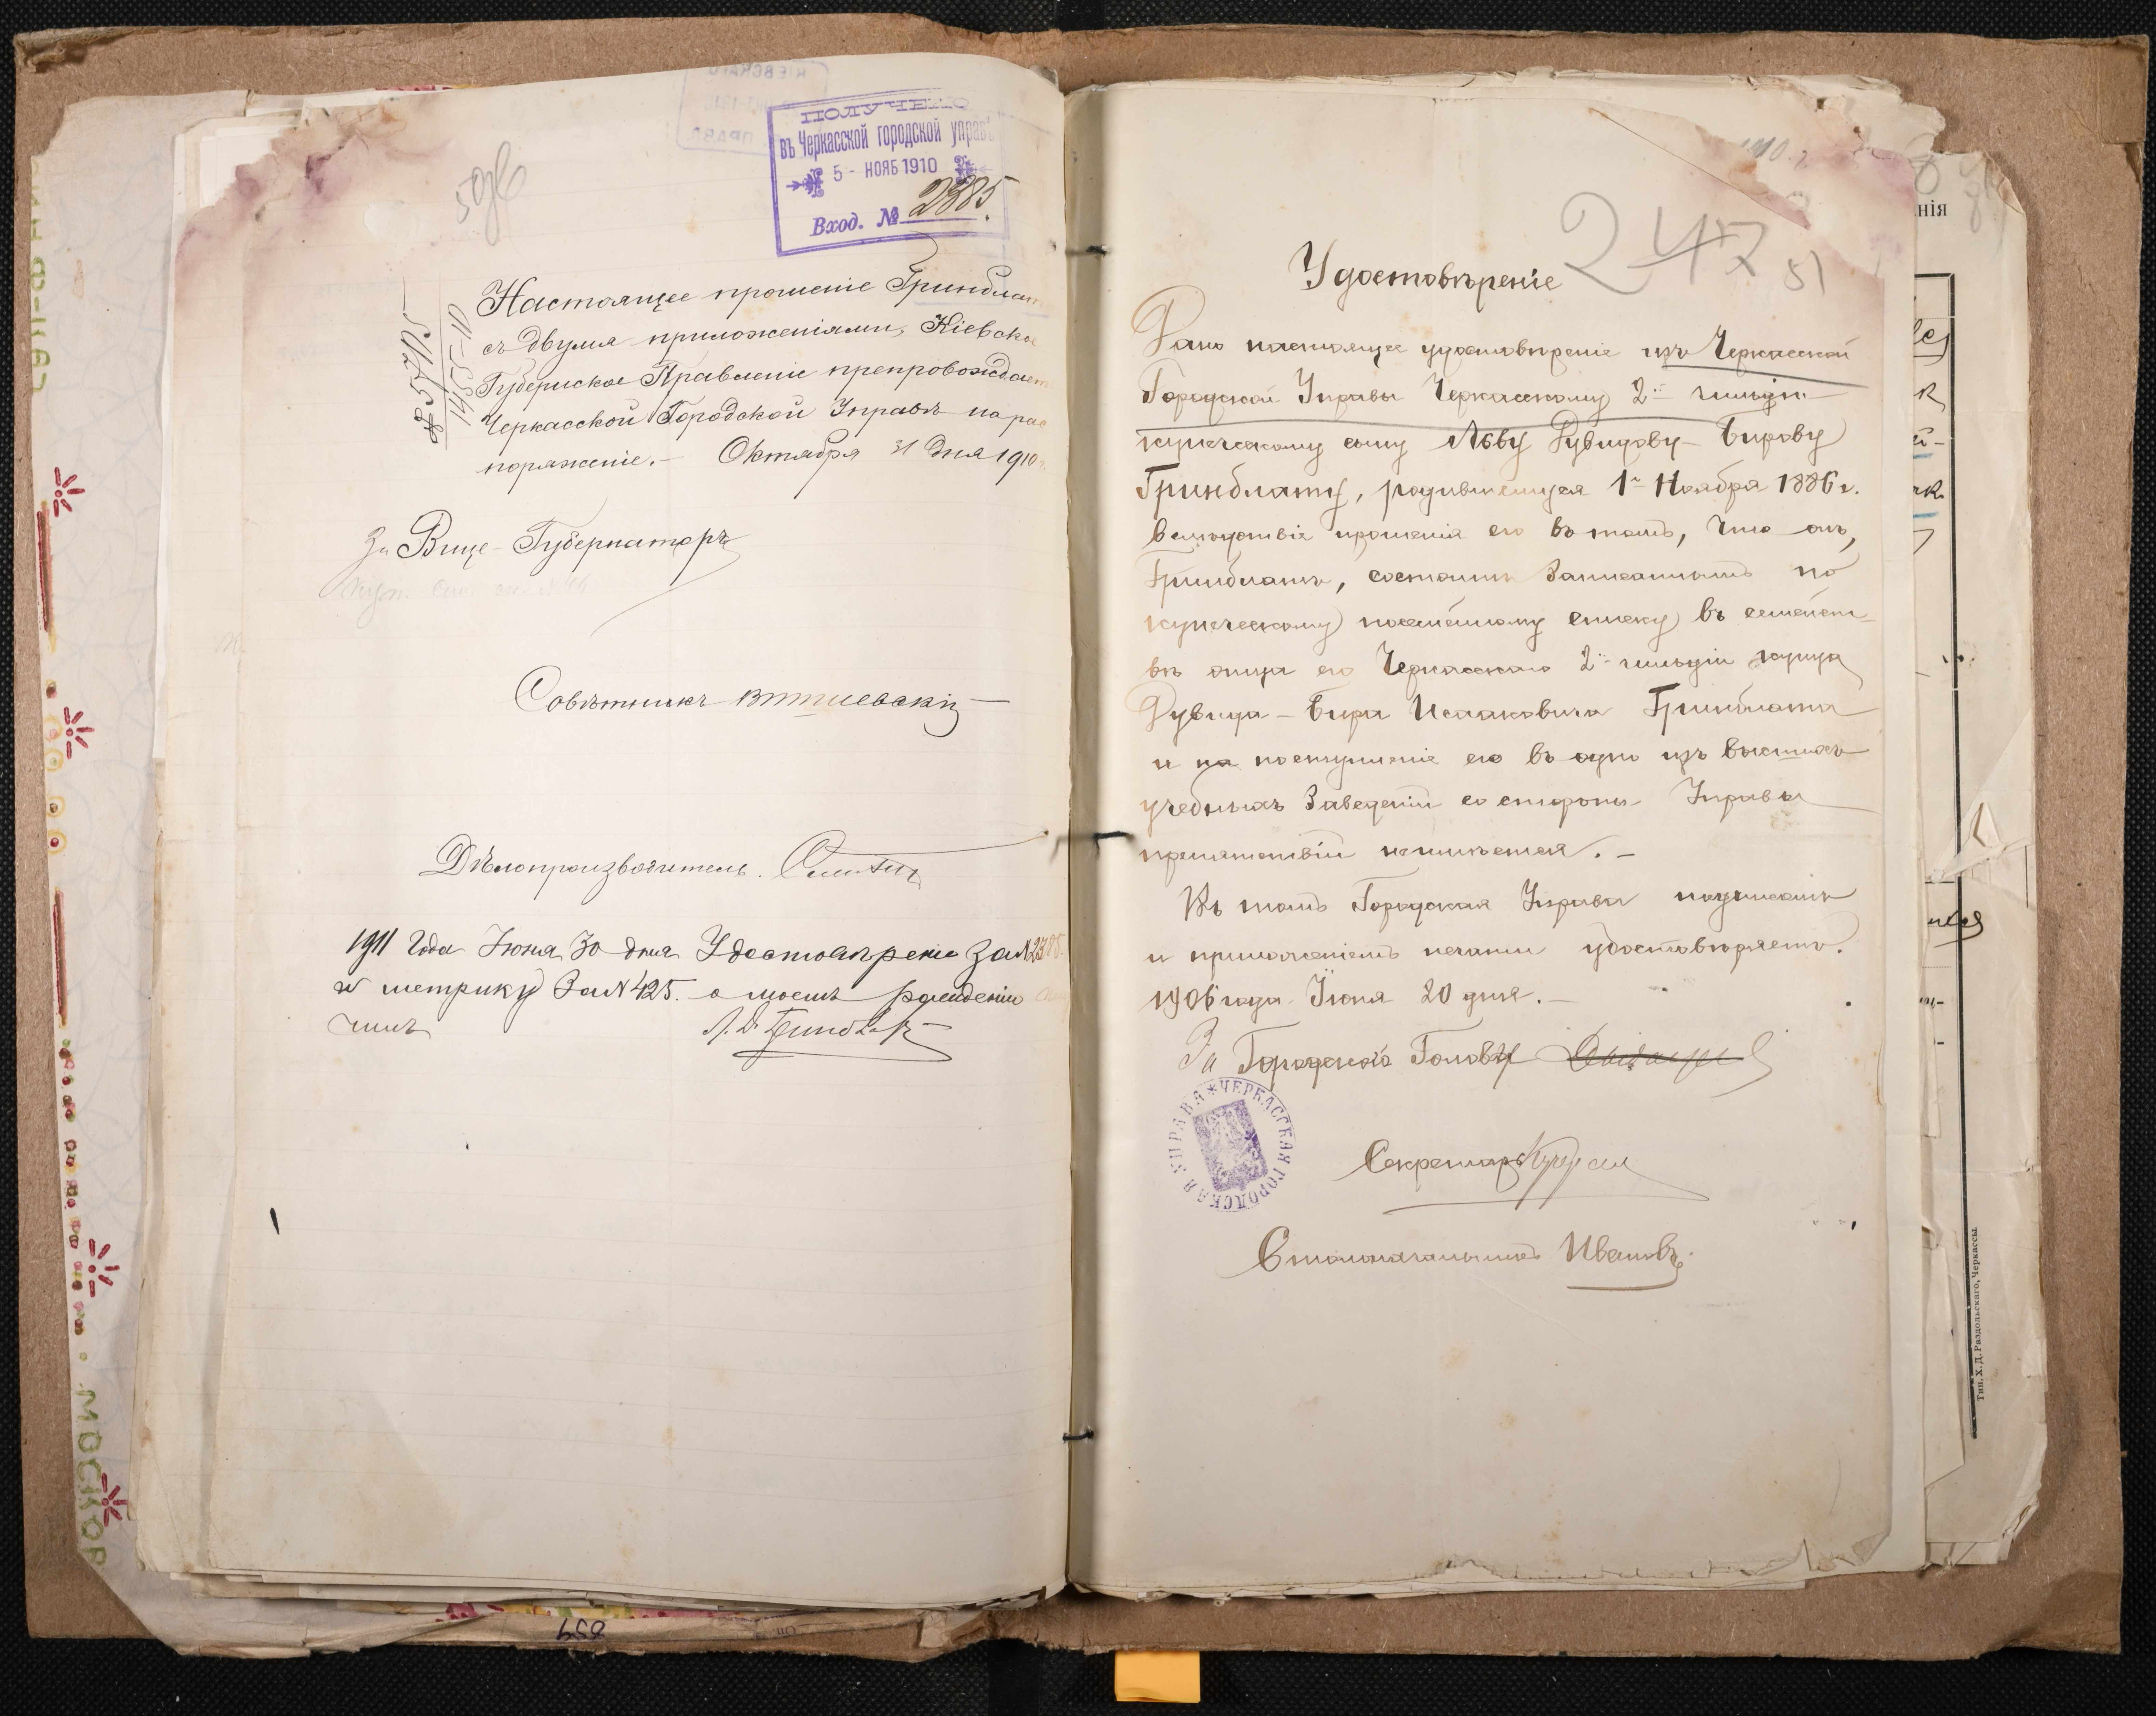 ПОЛУЧЕНО
въ Черкасской городской управѣ
5 - НОЯБ 1910
Вход. № 2385.
Настоящее прошеніе Гринблат
съ двумя приложеніями, Кіевско
Губернское Правленіе препровождает
Черкасской Городской Управѣ на рас
поряженіе.- Октября 31 дня 1910 г.
За Вице-Губернатора
Совѣтникъ
Дѣлопроизводитель.
1911 года Іюня 30 дня Удостовѣреніе за №2385.
и метрику за №425. о моемъ рожденіи
чилъ
247
51
Удостовѣреніе
Дано настоящее удостовѣреніе изъ Черкасской
Городской Управы Черкасскому 2й гильдіи
купеческому сыну Льву Дувидову-Бирову
Гринблату, родившемуся 1го Ноября 1886 г.
вслѣдствіе прошенія его въ томъ, что онъ,
Гринблатъ, состоитъ записаннымъ по
купеческому посемейному списку въ семейст-
вѣ отца его Черкасскаго 2й гильдіи купца
Дувида-Бира Исааковича Гринблата
и на поступленіе его въ одно изъ высшихъ
учебныхъ заведеній со стороны Управы
препятствій не имѣется.-
Въ томъ Городская Управа подписомъ
и приложеніемъ печати удостовѣряетъ.
1906 года Іюня 20 дня.-
За Городского Голову
ЧЕРКАССКАЯ ГОРОДСКАЯ УПРАВА
Секретарь
Столоначальникъ Ивановъ.
нія
Тип. Х. Д. Раздольскаго, Черкассы.
МОСКОВ
859